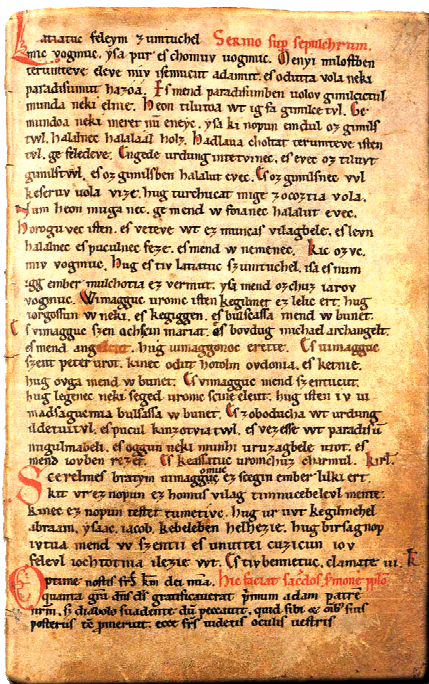 Latiatuc feleym zumtuchel Sermo sup sepulchrum.
mic vogmuc. yſa pur eſ chomuv uogmuc. Menyi miloſtben
terumteve eleve miv iſemucut adamut. eſ odutta vola neki
paradiſumut hazoa. Eſ mend paradiſumben uolov gimilcictul
munda neki elnie. Heon tilutoa wt ig fa gimilce tvl. Ge
mundoa neki meret nū eneyc. yſa ki nopun emdul oz gimilſ
twl. halalnec halalaal holz. Hadlaua choltat terumteve iſten
tvl. ge feledeve. Engede urdung intetvinec. eſ evec oz tiluvt
gimilſtwl. eſ oz gimilſben halalut evec. Eſ oz gimilſnec vvl
keſeruv uola vize. hug turchucat mige zocoztia vola.
Num heon muga nec. ge mend w foianec halalut evec.
Horogu vec iſten. eſ veteve wt ez muncaſ vilagbele. eſ levn
halalnec eſ puculnec feze. eſ mend w nemenec. Kic ozvc.
miv vogmuc. Hug eſ tiv latiatuv ſzumtuchel. iſa eſ num
igg ember mulchotia ez vermut. yſa mend ozchuz iarov
vogmuc. Wimagguc uromc iſten kegilmet ez lelic ert. hug
iorgoſſun w neki. eſ kegiggen. eſ bulſaſſa mend w bunet.
Eſ vimagguc ſzen achſcin mariat. eſ bovdug michael archangelt.
eſ mend angelcut. hug uimaggonoc erette. Eſ uimagguc
ſzent peter urot. kinec odut hotolm ovdonia. eſ ketnie.
hug ovga mend w bunet. Eſ vimagguc mend ſzentucut.
hug legenec neki ſeged uromc ſcine eleut. hug iſten iv ui
madſagucmia bulſaſſa w bunet. Eſ zoboducha wt urdung
ildetuitvl. eſ pucul kinzotviatwl. eſ vezeſſe wt paradiſū
nugulmabeli. eſ oggun neki munhi uruzagbele utot. eſ
mend iovben rezet. Eſ keaſſatuc uromchuz charmul. kirl.
Scerelmeſ bratym uimagguc omuc ez ſcegin ember lilki ert
kit vr ez nopun ez homuſ vilag timnucebelevl mente.
kinec ez nopun teſtet tumetivc. hug ur uvt kegilmehel
abraam. yſaac. iacob. kebeleben helhezie. hug birſagnop
iutva mend w ſzentii eſ unuttei cuzicun iov
felevl iochtotnia ilezie wt. Eſ tivbennetuc. clamate iii. k